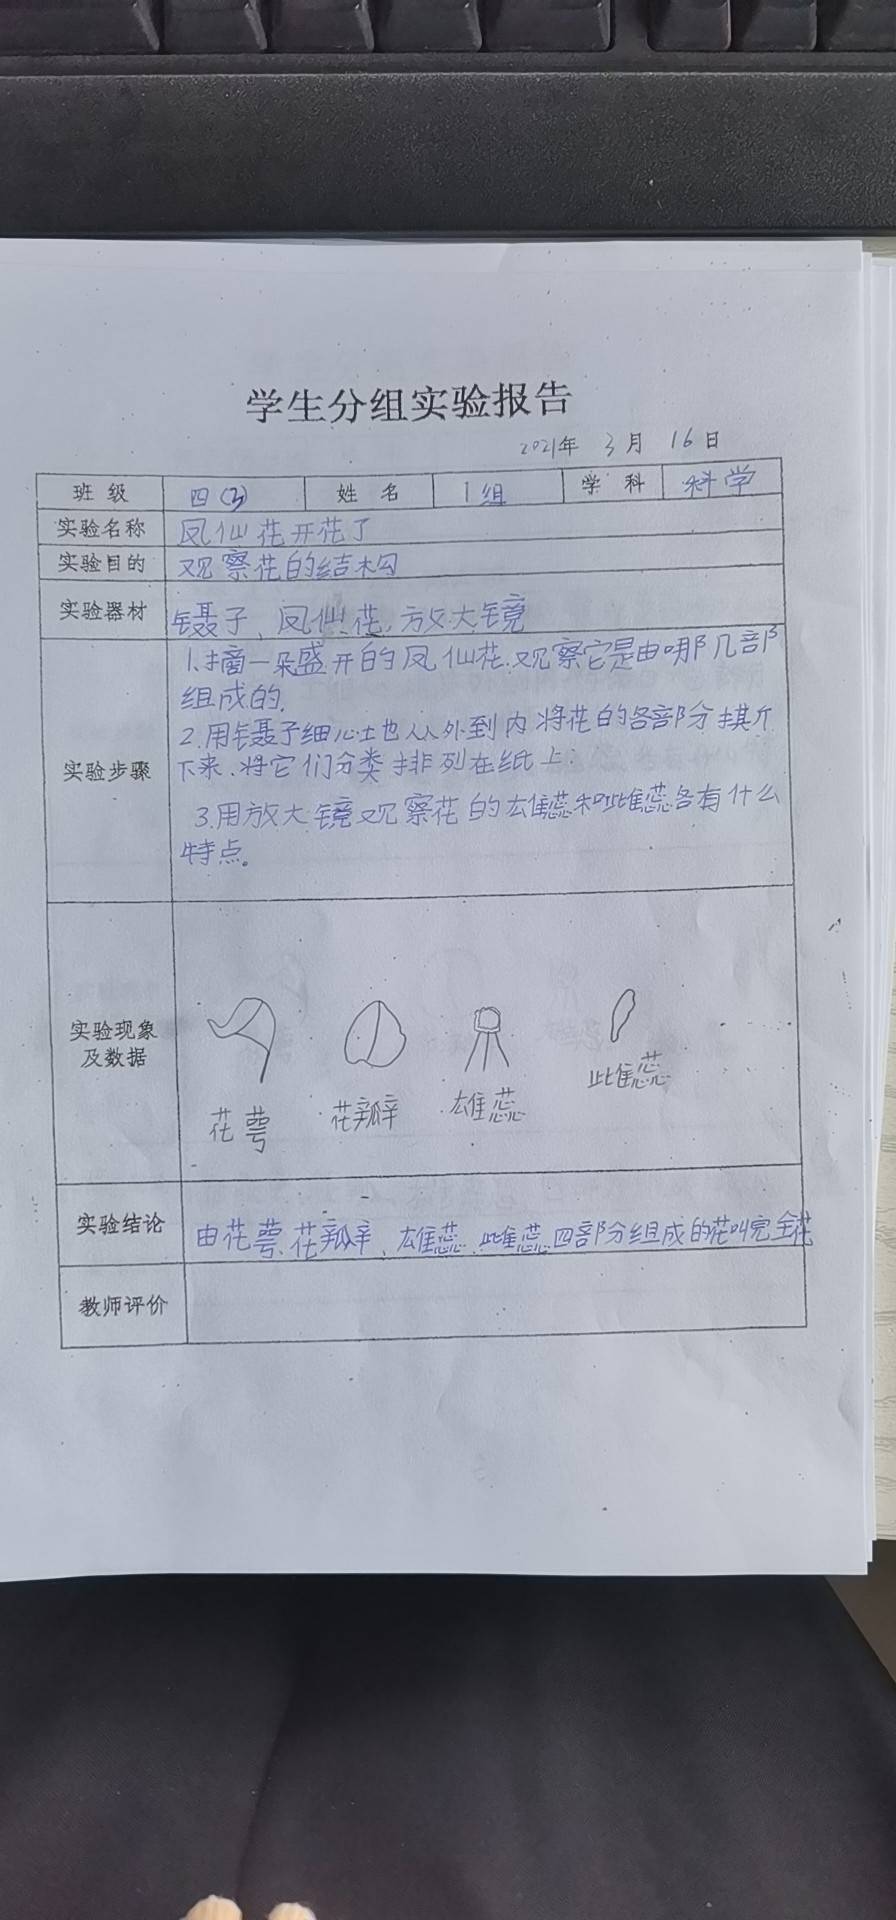 学生分组实验报告
2021年 3月 16日
班 级 四(3) 姓 名 1组 学 科 科学
实验名称 凤仙花开花了
实验目的 观察花的结构
实验器材 镊子、凤仙花、放大镜
1.摘一朵盛开的凤仙花.观察它是由哪几部
组成的.
2.用镊子细心地从外到内将花的各部分撕
实验步骤 下来.将它们分类排列在纸上.
3.用放大镜观察花的雄蕊和雌蕊各有什么
特点。
实验现象
及数据
花萼 花瓣 雄蕊 雌蕊
实验结论 由花萼、花瓣、雄蕊、雌蕊四部分组成的花叫完全花
教师评价